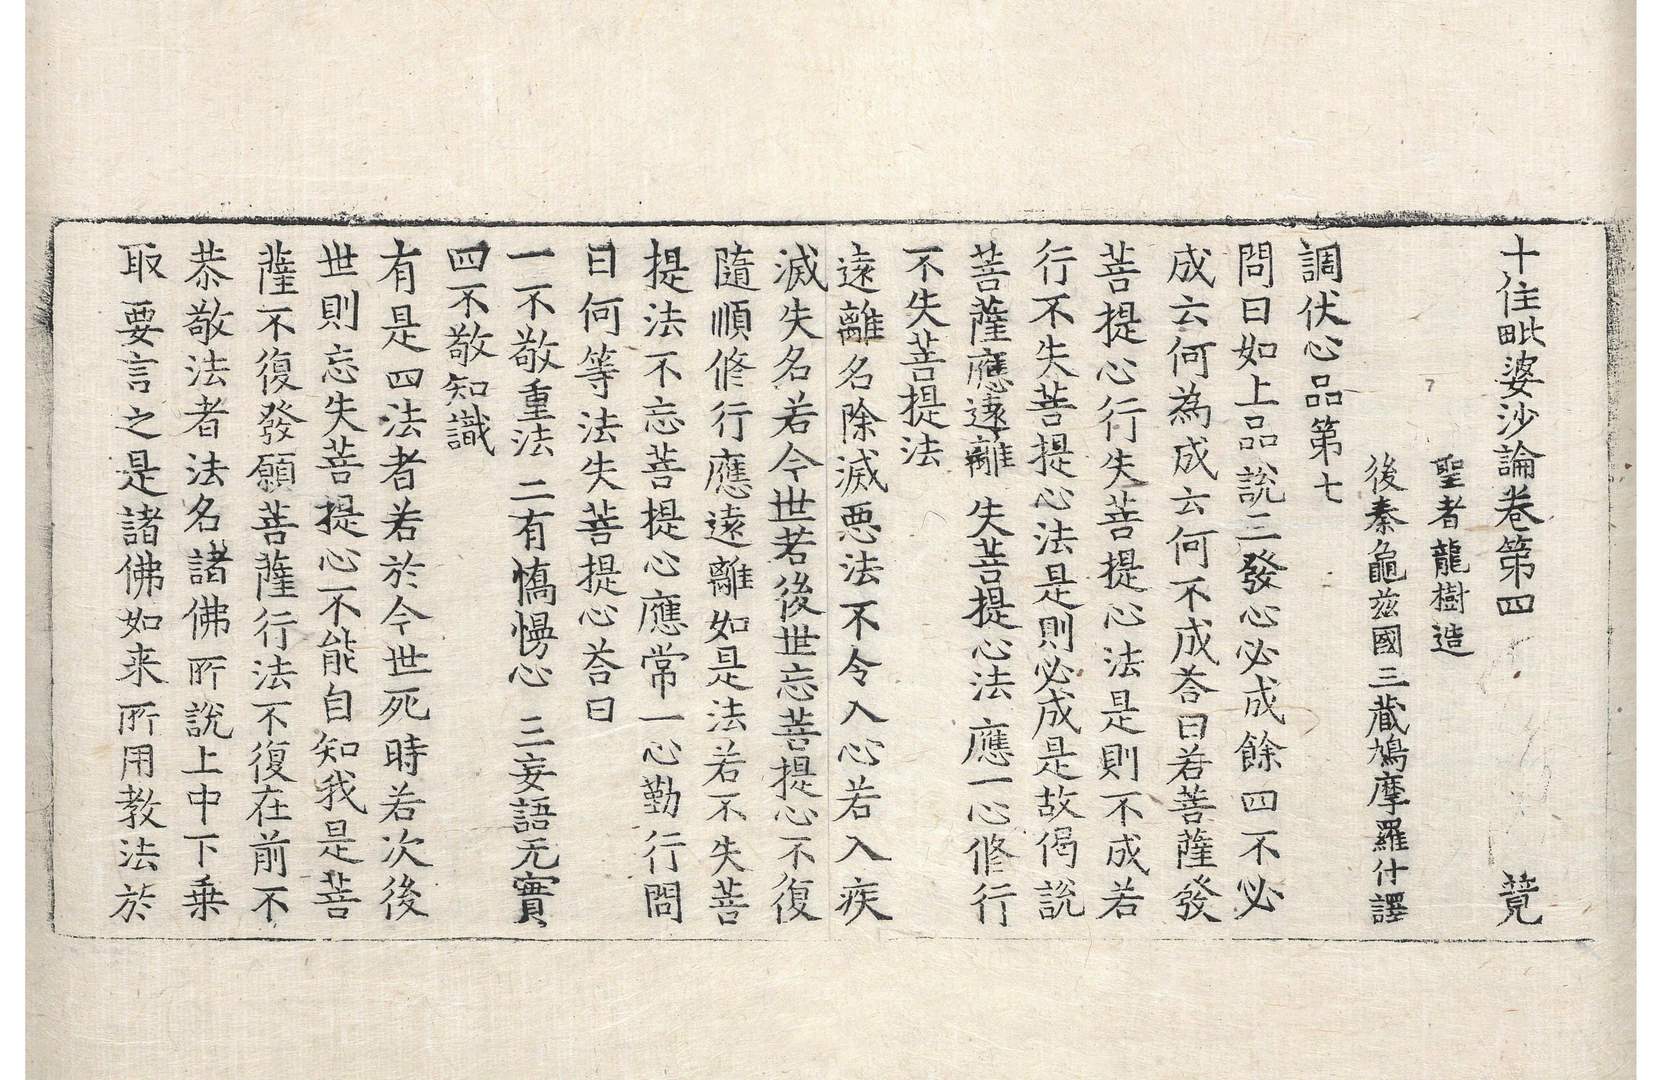 十住毗婆沙論卷第四 薧
聖者龍樹造
後秦龜茲國三藏鳩摩羅什譯
調伏心品第七
問曰如上品說三發心必成餘四不必
成云何為成云何不成荅曰若菩薩發
菩提心行失菩提心法是則不成若
行不失菩提心法是則必成是故偈說
菩薩應遠離 失菩提心法 應一心修行
不失菩提法
遠離名除滅惡法不令入心若入疾
滅失名若今世若後世忘菩提心不復
隨順修行應遠離如是法若不失菩
提法不忘菩提心應常一心勤行問
曰何等法失菩提心荅曰
一不敬重法 二有憍慢心 三妄語无實
四不敬知識
有是四法者若於今世死時若次後
世則忘失菩提心不能自知我是菩
薩不復發願菩薩行法不復在前不
恭敬法者法名諸佛所說上中下乗
取要言之是諸佛如来所用教法於